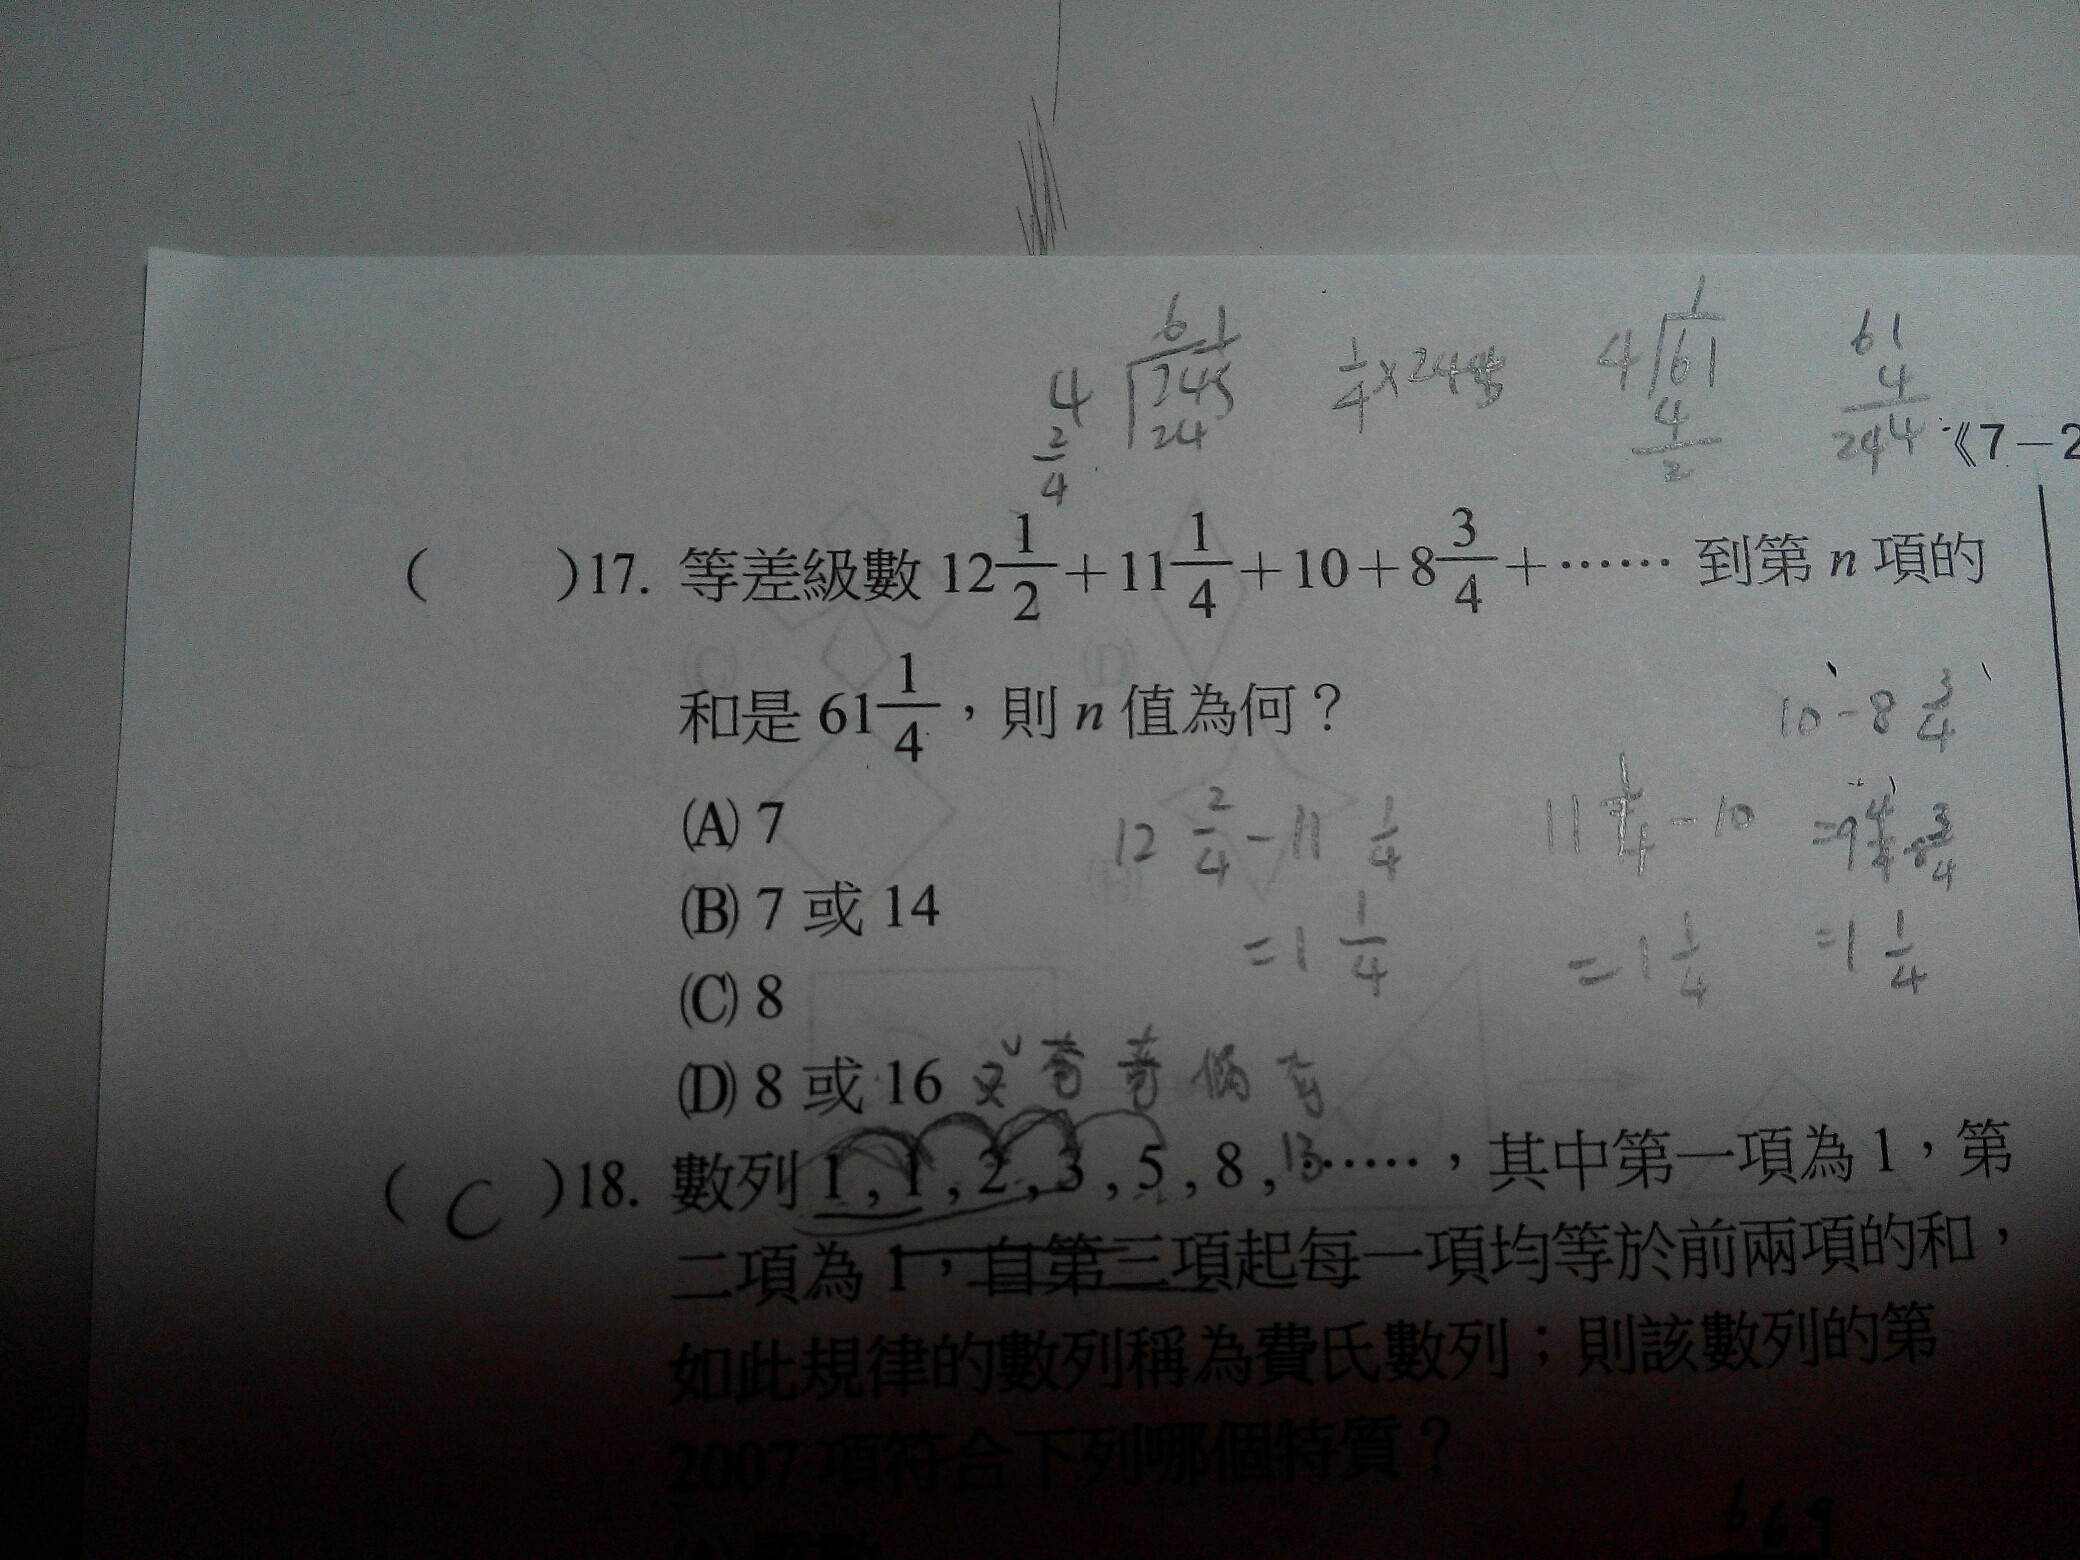 61
4 245
24
2/4
1/4×245
1
4 61
4
2
61
4
244
《7－2
( )17. 等差級數 12 1/2＋11 1/4＋10＋8 3/4＋…… 到第 n 項的
和是 61 1/4，則 n 值為何？
(A) 7
(B) 7 或 14
(C) 8
(D) 8 或 16
12 2/4 - 11 1/4
= 1 1/4
11 1/4 - 10
= 1 1/4
10 - 8 3/4
= 9 4/4 - 8 3/4
= 1 1/4
奇 奇 偶 奇
( C )18. 數列 1 , 1 , 2 , 3 , 5 , 8 , 13 ……，其中第一項為 1，第
二項為 1，自第三項起每一項均等於前兩項的和，
如此規律的數列稱為費氏數列；則該數列的第
2007 項符合下列哪個特質？
669